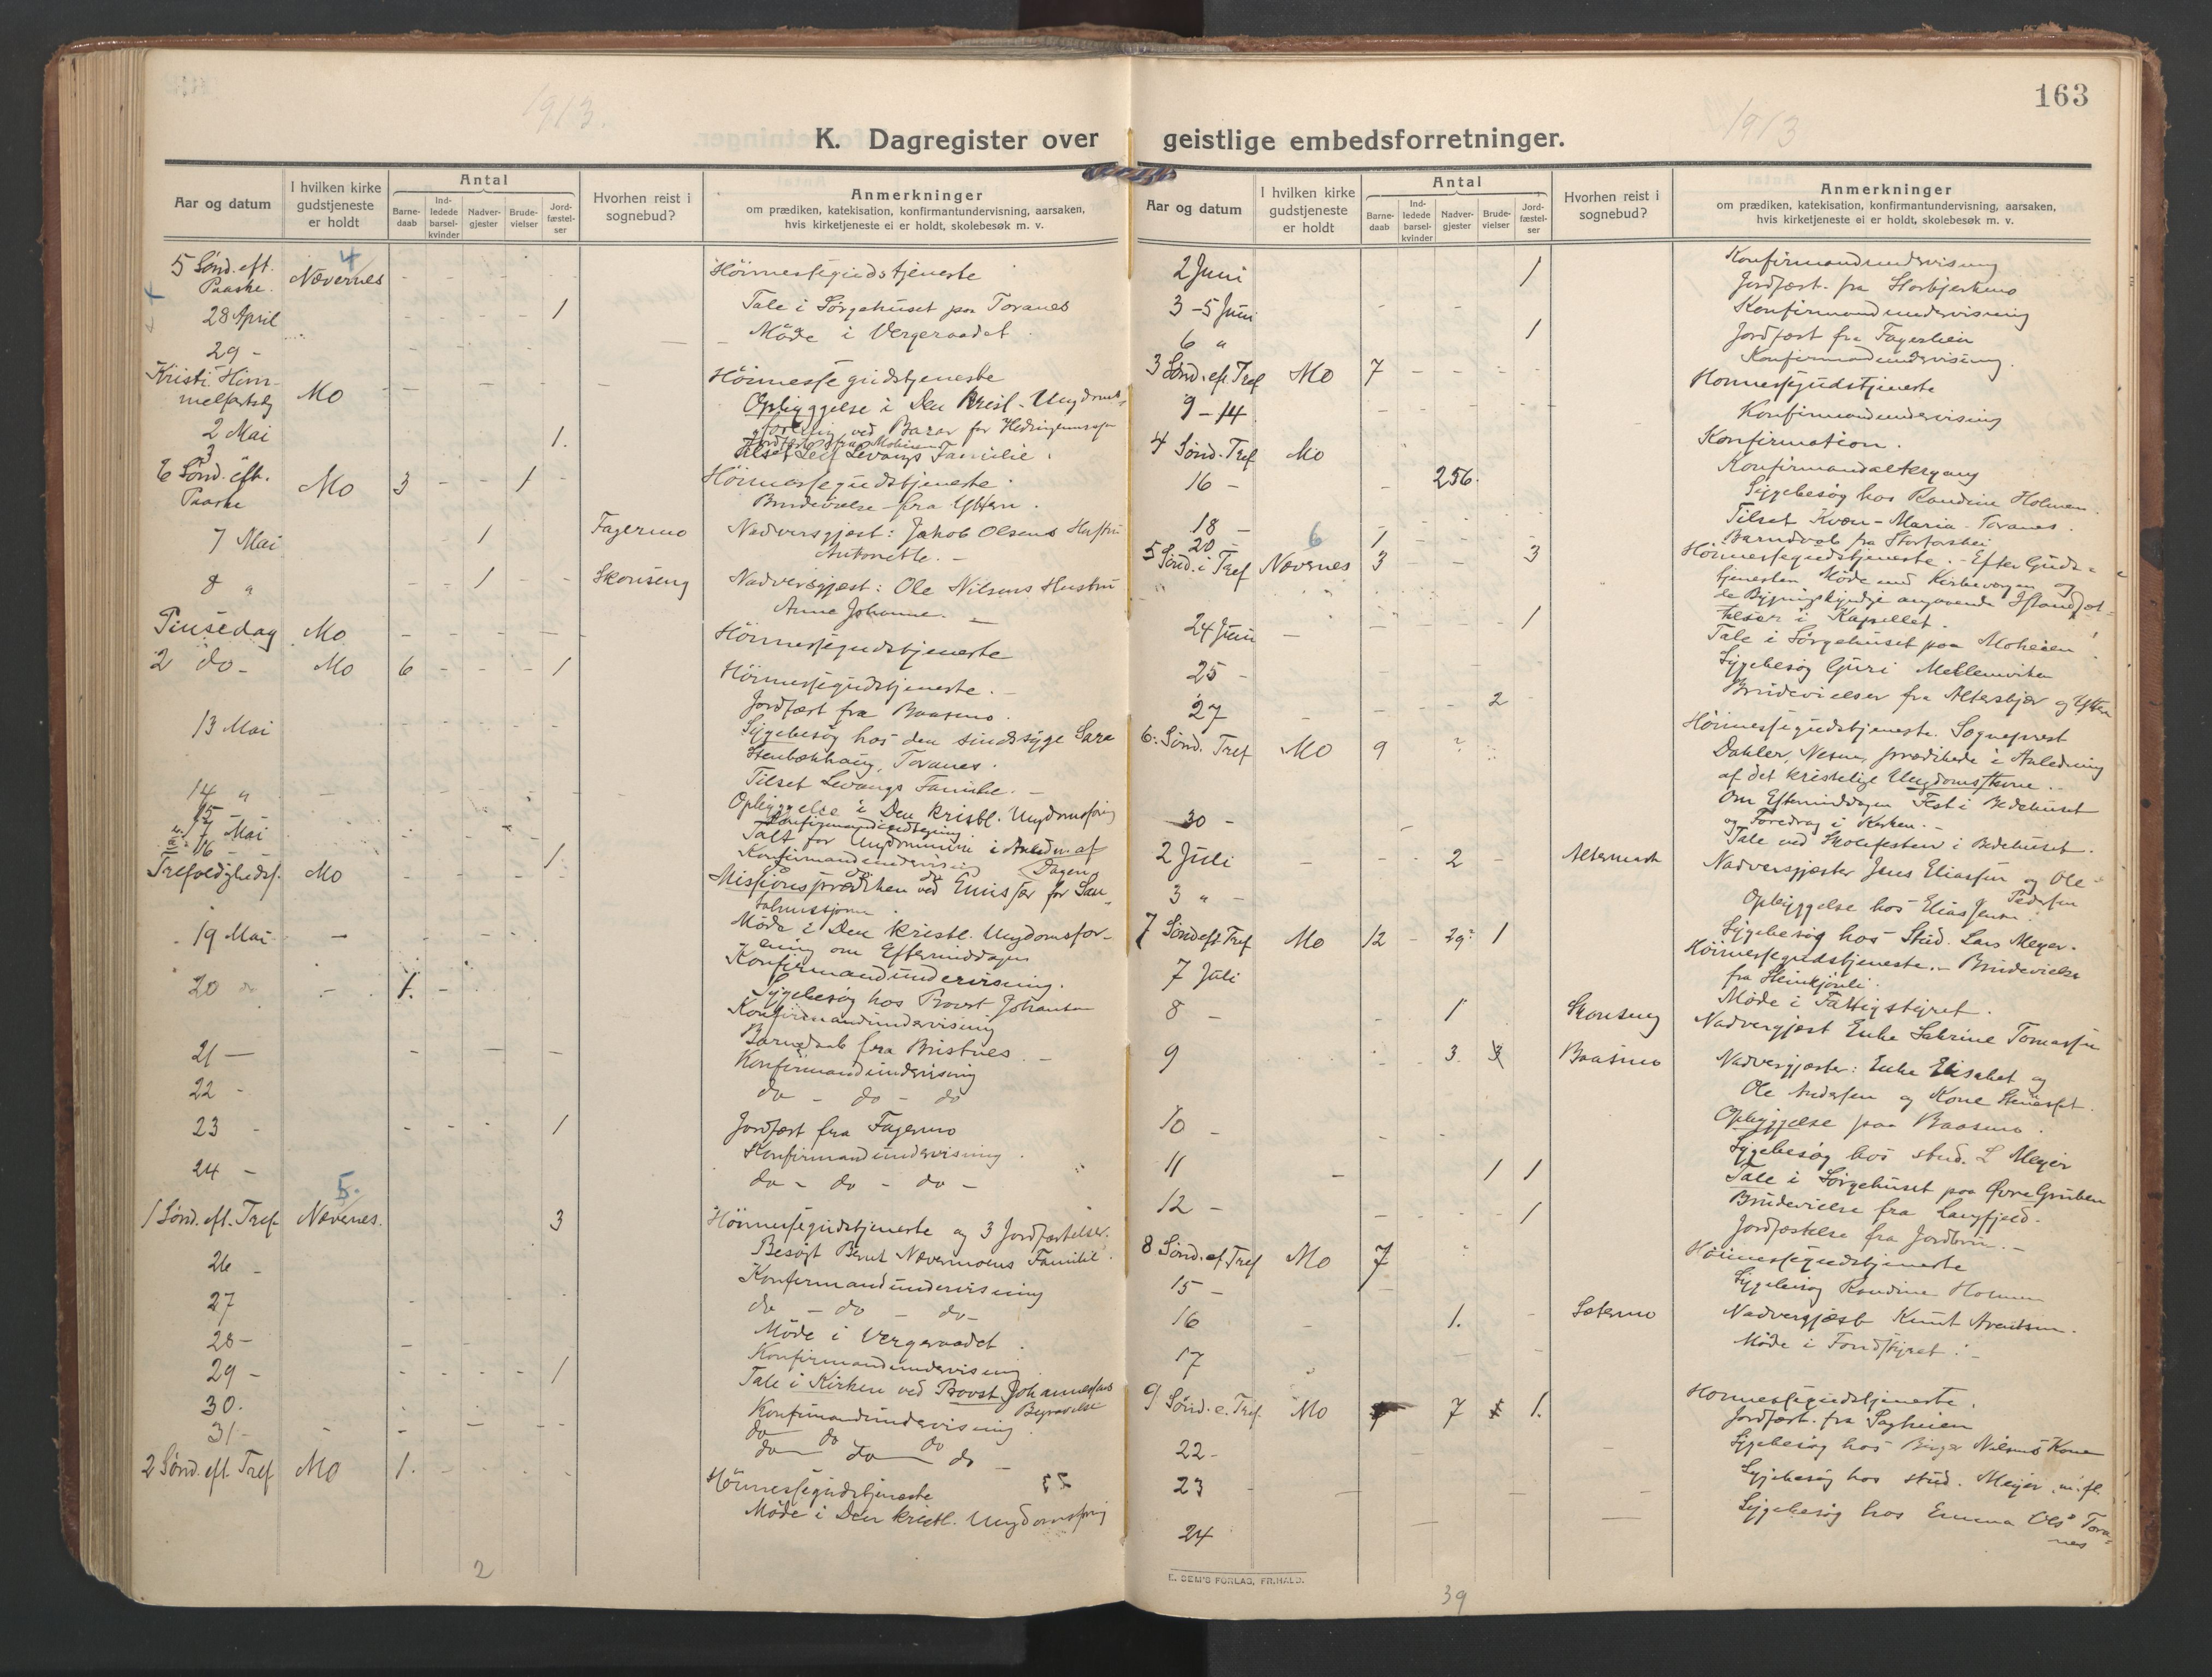 1913.
K. Dagregister over
Aar og datum
I hvilken kirke gudstjeneste er holdt
Antal
Barne-daab
Ind-ledede barsel-kvinder
Nadver-gjester
Brude-vielser
Jord-fæstel-ser
Hvorhen reist i sognebud?
Anmerkninger
om prædiken, katekisation, konfirmantundervisning, aarsaken,
hvis kirketjeneste ei er holdt, skolebesøk m. v.
4
5 Sønd. eft. Paaske. Nævernes Höimessegudstjeneste
28 April 1 Tale i Sørgehuset paa Toranes
29 - Møde i Vergeraadet
Kristi Himmelfartsdg Mo Höimessegudstjeneste
2 Mai Opbyggelse i Den Kristl. Ungdoms-
3 1.
Tilset Leif Levangs Familie.
6 Sønd. eft. Paaske Mo 3 1 Höimessegudstjeneste.
Brudevielse fra Yttern.
7 Mai 1 Fagermo Nadversgjæst: Jakob Olsens Hustru
Antonette. -
8 " 1 Skonseng Nadversgjæst: Ole Nilsens Hustru
Anne Johanne. -
Pinsedag Mo Höimessegudstjeneste
2 do - Mo 6 1 Höimessegudstjeneste. -
Jordfæst fra Baasmo.
13 Mai Sygebesøg hos den sindssyge Sara
Toranes.
14 " Tilset Levangs Familie. -
15 Opbyggelse i Den kristl. Ungdomsforg
17 Mai Talt for Ungdommen i Anledn. af
16 - 1 Konfirmandundervisning Dagen
Trefoldighedsf. Mo Missionsprædiken ved Emissær for San-
talmissionen.
Møde i Den kristl. Ungdomsfor-
ening om Eftermiddagen
19 Mai Konfirmandundervisning.
Sygebesøg hos Provst Johansen
20 1. Konfirmandundervisning
Barnedaab fra Bustnes. -
21 - Konfirmandundervisning
22 - do - do - do
23 - 1 Jordfæst fra Fagermo
Konfirmandundervisning.
24 - do - do - do -
5.
1 Sønd. eft. Tref. Nævernes. 3 Höimessegudstjeneste og 3 Jordfæstelser.
26 - Besøgt Bernt Nævermoens Familie.
Konfirmandundervisning
27 do - do - do -
28 - Møde i Vergeraadet.
Konfirmandundervisning
29 - 1 Tale i Kirken ved Provst Johannesens
Begravelse
30. Konfirmandundervisning.
do do do
31 - do - do - do -
2 Sønd. eft. Tref Mo 1. Höimessegudstjeneste
Møde i Den kristl. Ungdomsforg
2
163
1913
geistlige embedsforretninger.
Aar og datum
I hvilken kirke gudstjeneste er holdt
Antal
Barne-daab
Ind-ledede barsel-kvinder
Nadver-gjester
Brude-vielser
Jord-fæstel-ser
Hvorhen reist i sognebud?
Anmerkninger
om prædiken, katekisation, konfirmantundervisning, aarsaken,
hvis kirketjeneste ei er holdt, skolebesøk m. v.
2 Juni 1 Konfirmandundervisning
Jordfæst. fra Storbjerkmo
3 - 5 Juni Konfirmandundervisning
6 " 1 Jordfæst fra Fagerlien
Konfirmandundervisning.
3 Sønd. ef. Tref Mo 7 Höimessegudstjeneste
9 - 14. Konfirmandundervisning
4 Sønd. Tref Mo Konfirmation.
16 - 256. Konfirmandaltergang
Sygebesøg hos Randine Holmen.
18 - Tilset Kvæn-Maria. Toranes.
20 - 1 Barndaab fra Storforshei
6
5 Sønd. i Tref Nævernes 3 3 Höimessegudstjeneste. - Efter Guds-
tjenesten Møde med Kirkevergen og
de Bygningskyndige angaaende Istandsæt-
telser i Kapellet.
24 Juni 1 Tale i Sørgehuset paa Moheien
25 - Sygebesøg Guri
27 2 Brudevielser fra Altersbjer og Yttern
6. Sønd. Tref Mo 9 Höimessegudstjeneste. Sogneprest
Dahler, Nesna, prædikede i Anledning
af det kristelige Ungdomsstevne. -
Om Eftermiddagen Fest i Bedehuset
og Foredrag i Kirken. -
30 - Tale ved Skolefesten i Bedehuset.
2 Juli 2 Altermark Nadversgjæster Jens Eliassen og Ole
Pedersen
3 " - Opbyggelse hos Elias Jensen.
Sygebesøg hos Stud. Lars Meyer.
7 Sønd eft Tref Mo 12 29 1 Höimessegudstjeneste. - Brudevielse
fra
7 Juli Møde i Fattigstyret.
8 - 1 Skonseng Nadvergjæst Enke Sabrine Tomassen
9 3. 3 Baasmo Nadvergjæster: Enke Elisabet og
Ole Andersen og Kone
10 - Opbyggelse paa Baasmo.
Sygebesøg hos stud. L Meyer
11 1 1 Tale i Sørgehuset paa Øvre Gruben
Brudevielse fra Langfjeld.
12 - 1 Jordfæstelse fra Jordbru. -
8 Sønd. ef Tref Mo 7 Höimessegudstjeneste
15 - Sygebesøg Randine Holmen
16 1. Sætermo Nadvergjæst Knut Arentsen.
17 Møde i Fondstyret. -
9 Sønd. e. Tref. Mo 7 1. Höimessegudstjeneste.
Jordfæst. fra Sagheien
22 - Sygebesøg hos Birger Nilsens Kone
23 - Sygebesøg hos stud. Meyer. m. fl.
24 Sygebesøg hos Emma Ols Tora-
nes
E. SEM'S FORLAG, FR.HALD.
39